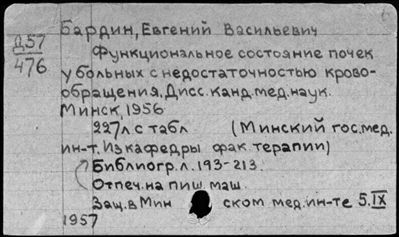 Бардин, Евгений Васильевич
Д57
476
Функциональное состояние почек
у больных с недостаточностью крово-
обращения. Дисс. канд. мед. наук.
Минск, 1956
227л. с табл (Минский гос. мед.
ин-т. Из кафедры фак. терапии)
Библиогр. л. 193-213.
Отпеч. на пиш. маш.
Защ. в Мин ском мед. ин-те 5.IX
1957